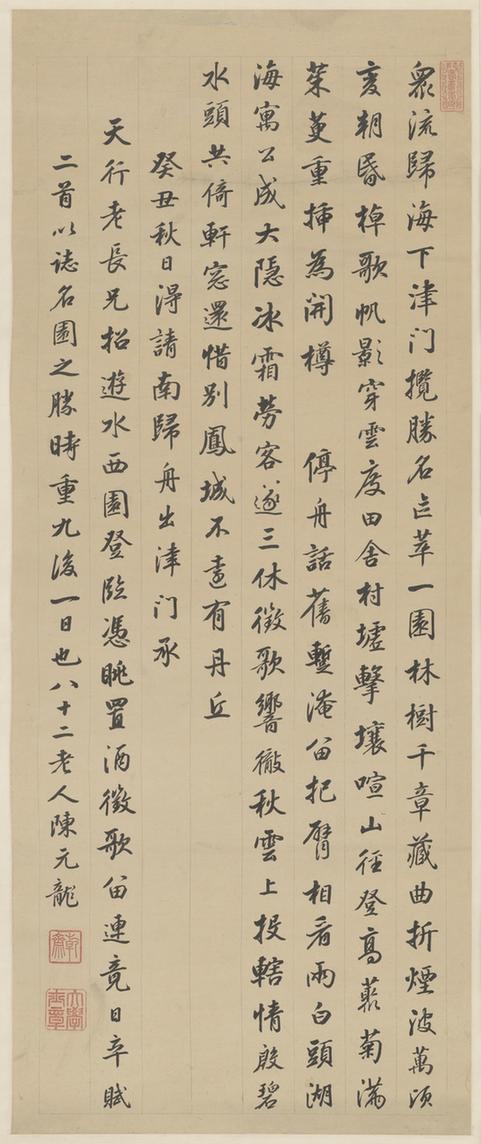 眾流歸海下津门攬勝名區萃一園林樹千章藏曲折煙波萬頃
变朝昏棹歌帆影穿雲度田舍村墟擊壤喧山徑登高叢菊滿
茱萸重揷為開樽　停舟話舊暫淹留把臂相看兩白頭湖
海寓公成大隱冰霜勞客遂三休徵歌響徹秋雲上投轄情殷碧
水頭共倚軒窓還惜別鳳城不有丹丘
癸丑秋日淂請南歸舟出津门承
天行老長兄招遊水西園登臨憑眺置酒徵歌留連竟日卒賦
二首以誌名園之勝時重九後一日也八十二老人陳元龍
乾齋